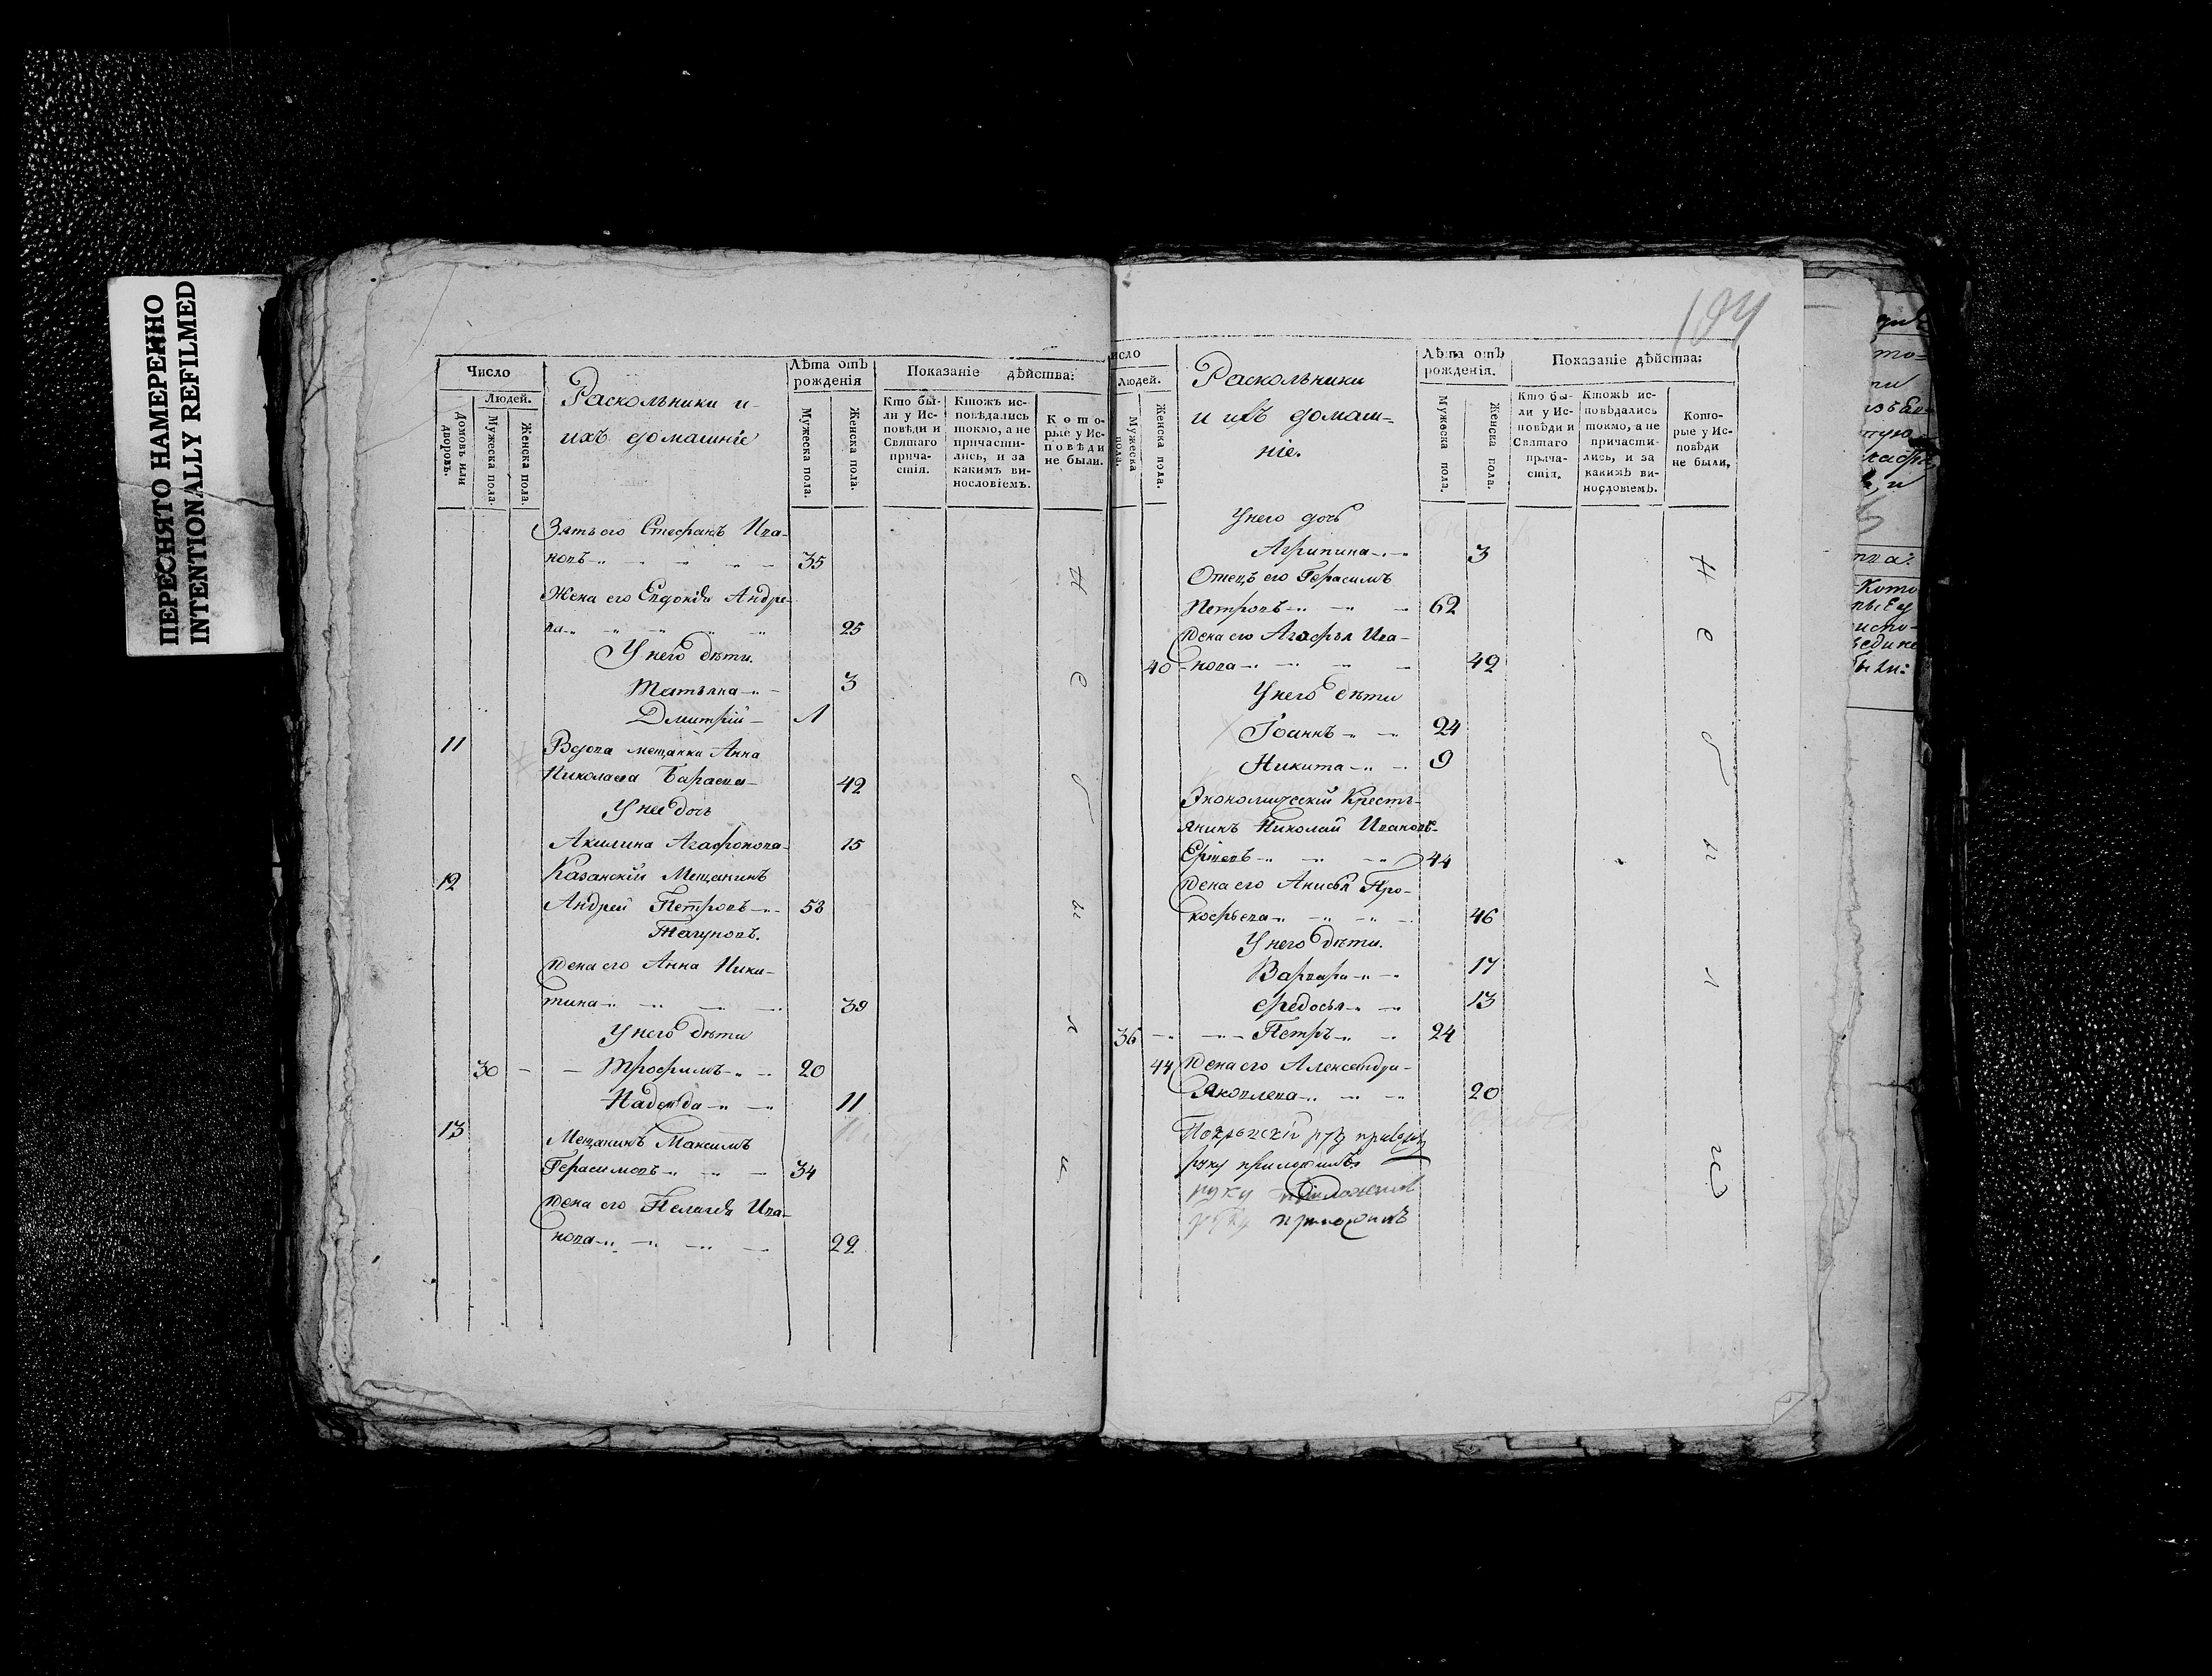 ПЕРЕСНЯТО НАМЕРЕННО
INTENTIONALLY REFILMED
Число
Людей.
Домовъ или дворовъ.
Мужеска пола.
Женска пола.
Раскольники и
ихъ домашніе
Лѣта отъ рожденія
Мужеска пола.
Женска пола.
Показаніе дѣйства:
Кто бы-
ли у Ис-
повѣди и
Святаго
прича-
стія.
Ктожъ ис-
повѣдались
токмо, а не
причасти-
лись, и за
какимъ ви-
нословіемъ.
Кото-
рые у Ис-
повѣди
не были.
Зять его Стефанъ Ива-
новъ 35
Жена его Евдокія Андре-
ва 25
У него дѣти.
Татьяна 3
Дмитрій 1
11 Вдова мещанка Анна
Николаева 42
У нее дочь
Акилина Агафонова 15
12 Казанскій Мещанинъ
Андрей Петровъ 58
Тагуновъ.
Жена его Анна Ники-
тина 39
У него дѣти
30 Трофимъ 20
Надежда 11
13 Мещанинъ Максимъ
Герасимовъ 34
Жена его Пелагея Ива-
нова 29
н
е
б
ы
л
и
194
исло
Людей.
Мужеска пола.
Женска пола.
Раскольники
и ихъ домаш-
ніе.
Лѣта отъ
рожденія.
Мужеска пола.
Женска пола.
Показаніе дѣйства:
Кто бы-
ли у Ис-
повѣди и
Святаго
прича-
стія.
Ктожъ ис-
повѣдались
токмо, а не
причасти-
лись, и за
какимъ ви-
нословіемъ.
Кото-
рые у Ис-
повѣди
не были.
У него дочь
Агрипина 3
Отецъ его Герасимъ
Петровъ 62
Жена его Агафья Ива-
40 нова 49
У него дѣти
Іоаннъ 24
Никита 9
Экономическій Кресть-
янинъ Николай Ивановъ
Ершовъ 44
Жена его Анисья Про-
кофьева 46
У него дѣти.
Варвара 17
Федосья 13
36 Петръ 24
44 Жена его Александра
Яковлева 20
руку приложилъ
руку приложилъ
руку приложилъ
н
е
б
ы
л
и